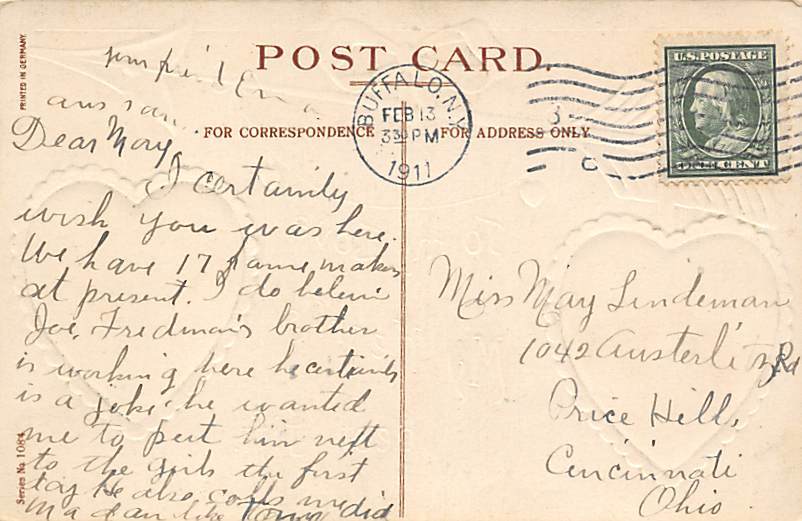 POST CARD.
PRINTED IN GERMANY
BUFFALO, N.Y.
FEB 13
3 30 PM
1911
U.S. POSTAGE
ONE CENT
FOR CORRESPONDENCE
FOR ADDRESS ONLY.
your friend
ans soon
Dear May,
I certainly
wish you was here.
We have 17 makers
at present. I do believe
Joe. Fredman's brother
is working here he certainly
is a joke he wanted
me to put him next
to the girls the first
day he also calls me
Madam like did
Series No 108
Miss May Lindeman
1042 Austerlitz Rd
Price Hill,
Cincinnati
Ohio.